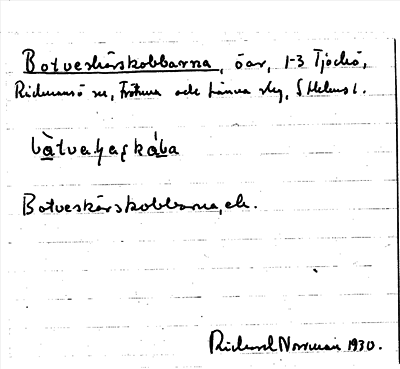 Botveskärskobbarna, öar, 1-3 Tjockö,
Rådmansö sn, Frötuna och Länna skg, S Helms l.
bòtvaʂaʂkába
Botveskärskobbarna, ek.
Rickard Norrman 1930.